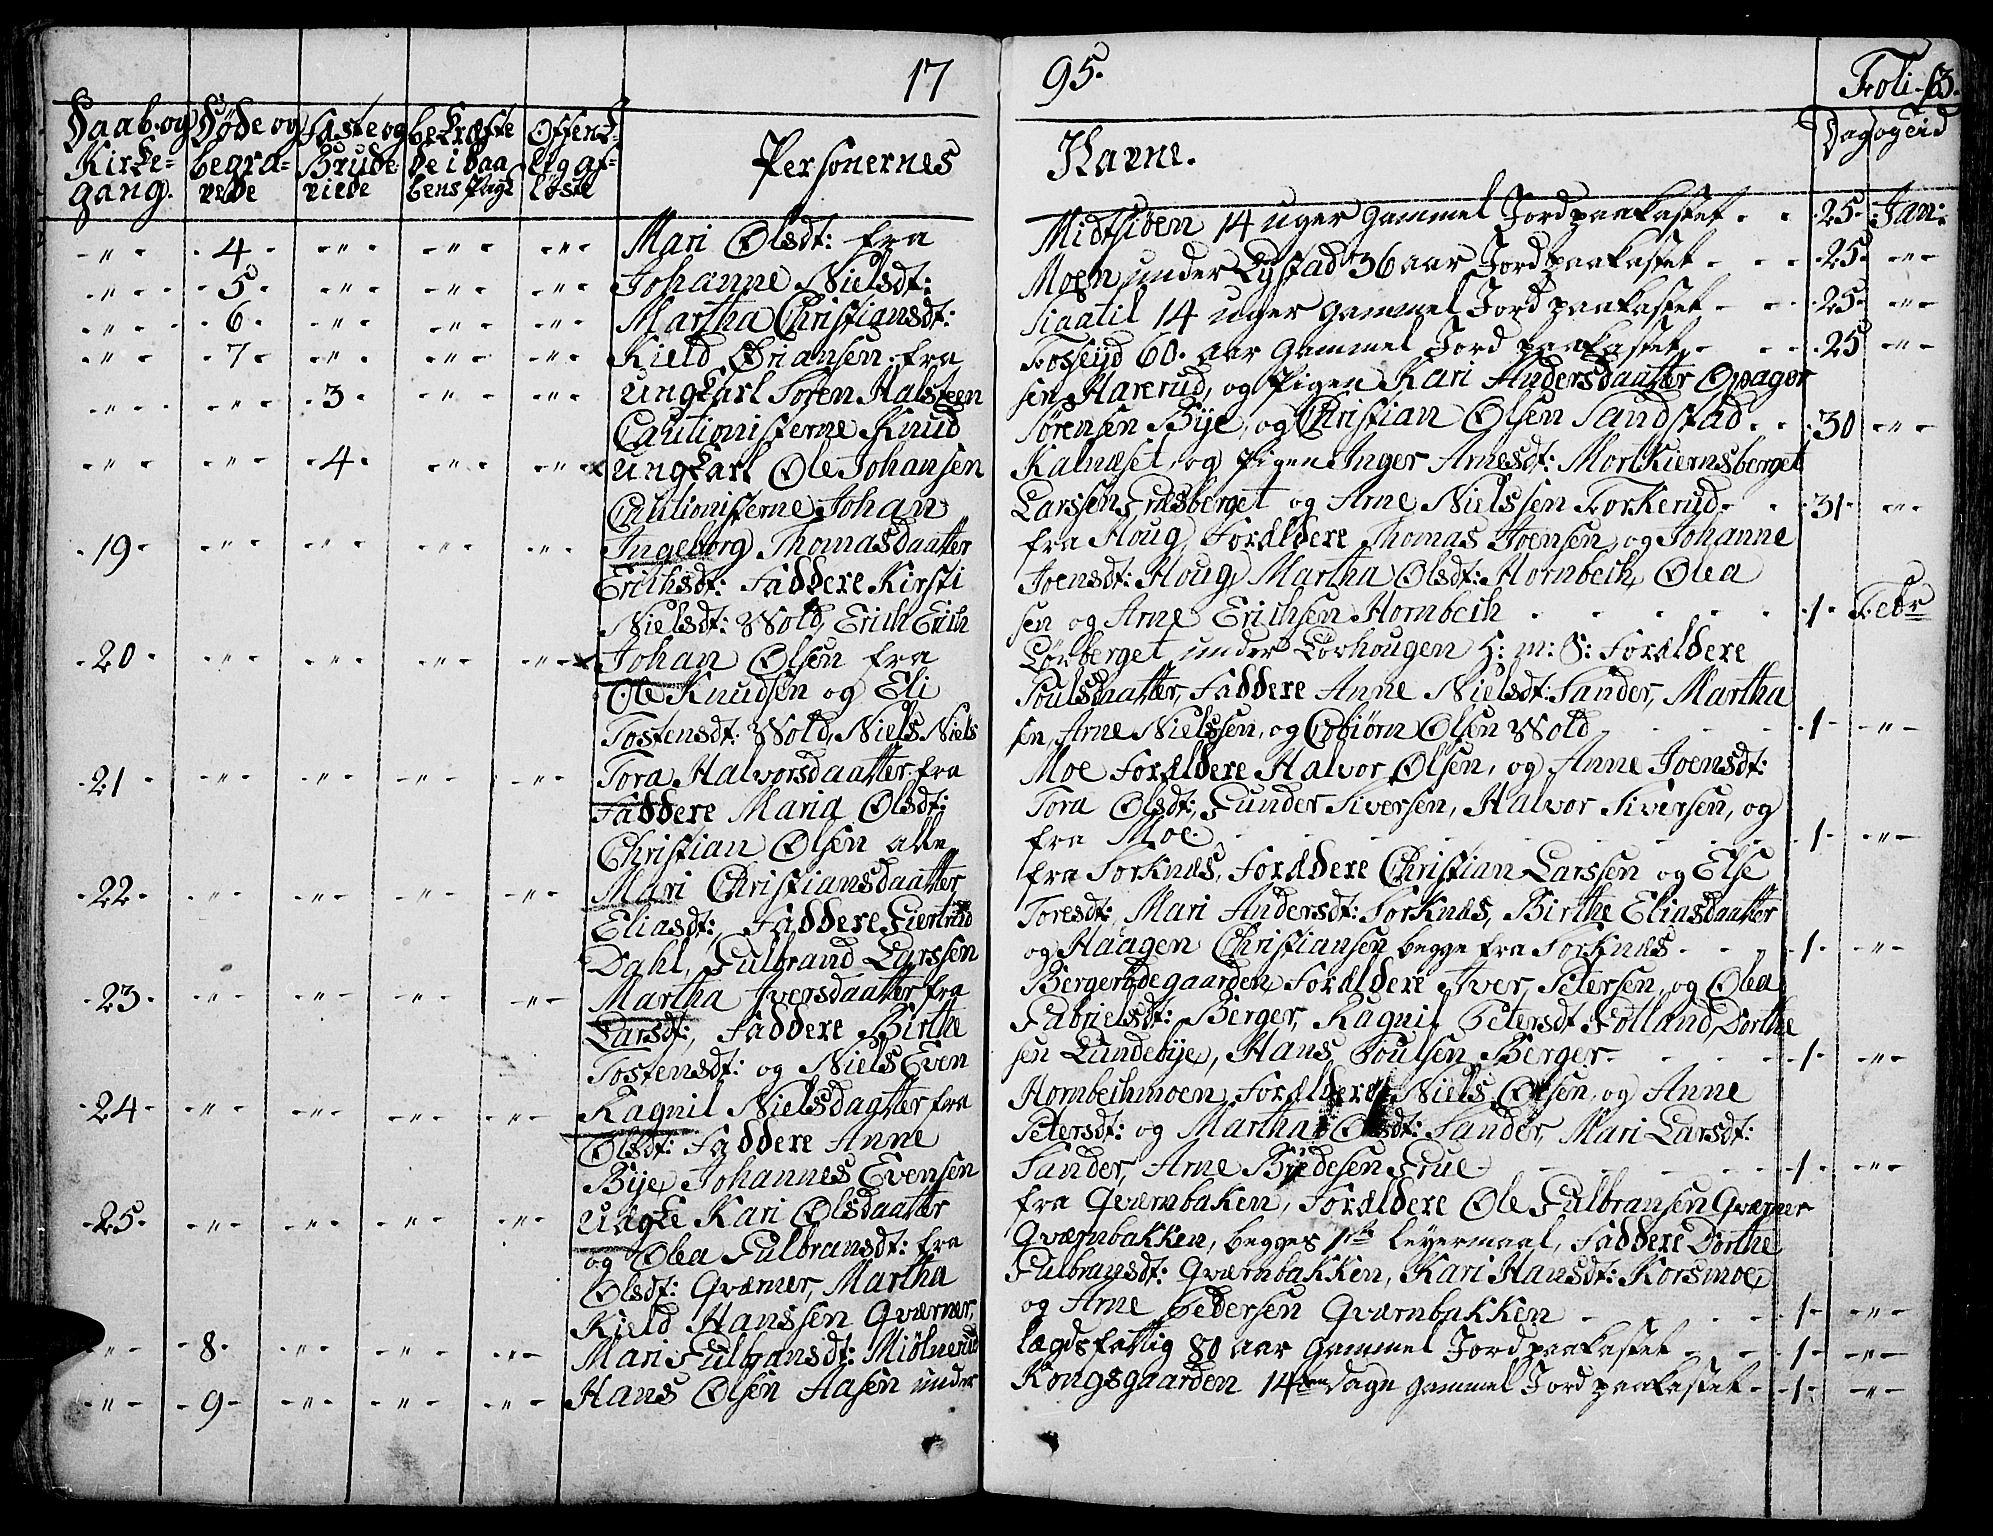 17 95. Foli. 63.
Daab og Kirke= gang. Døde og begra= vede Fæste og Brude viede bekræfte de i Daa bens Pagt Offent= lig af= løste Personernes Navne. Dag og Tid
4 Mari Olsdt: fra Midtsiden 14 uger gammel Jord paakastet 25 Jan:
5 Johanne Nielsdt: Moen under Lystad 36 aar Jord paakastet 25
6 Martha Christiansdt: 14 uger gammel Jord paakastet 25
7 Kield fra 60. aar gammel Jord paakastet 25
3 Ungkarl Søren Halsteen sen Harerud, og Pigen Kari Andersdaatter Opager
Cautionisterne Knud Sørensen Bije, og Christian Olsen Sandstad 30
4 Ungkarl Ole Johansen Kalneset, og Pigen Inger Arnesdt: Mortkiernsberget
Cautionisterne Johan Larssen og Arne Nielssen Torkerud 31
19 Ingeborg Thomasdaatter fra Houg, Forældere Thomas Joensen og Johanne
Erichsdt: Faddere Kirsti Joensdt: Houg, Martha Olsdt: Hornbech, Olea
Nielsdt: Wold, Erich Erich sen og Arne Erichsen Hornbech 1 Febr
20 Johan Olsen fra Løvberget under Løvhougen H: m: S: Forældere
Ole Knudsen og Eli Poulsdaatter, Faddere Anne Nielsdt: Sander, Martha
Tostensdt: Wold, Niels Niels sen, Arne Nielssen, og Esbiørn Olsen Wold 1
21 Tora Halvorsdaatter fra Moe Forældere Halvor Olsen, og Anne Joensdt:
Faddere Maria Olsdt: Tora Olsdt: Gunder Siversen, Halvor Siversen, og
Christian Olsen alle fra Moe. 1
22 Mari Christiansdaatter fra Sorknæs, Forældere Christian Larssen og Else
Eliasdt:, Faddere Giertrud Toresdt:, Mari Andersdt: Sorknæs, Birthe Eliasdaatter
Dahl, Gulbrand Larssen og Haagen Christiansen begge fra Sorknæs 1
23 Martha Iversdaatter fra Bergerødegaarden, Forældere Iver Petersen, og Olea
Larsdt:, Faddere Birthe Gabrielsdt: Berger, Ragnil Petersdt Dorthe
Tostensdt: og Niels Even sen Lundebye, Hans Poulsen Berger 1
24 Ragnil Nielsdaatter fra Hornbechmoen, Forældere Niels Olsen, og Anne
Olsdt: Faddere Anne Petersdt: og Martha Olsdt: Sander, Mari Larsdt:
Bije, Johannes Evensen Sander, Arne 1
25 Uægte Kari Olsdaatter fra Qværnbaken, Forældere Ole Gulbransen Qværner
og Olea Gulbransdt: fra Qværnbakken, begges 1ste leyermaal, Faddere Dorthe
Olsdt: Qværner, Martha Gulbransdt: Qværnbakken, Kari Hansdt: Korsmoe,
Kield Hanssen Qværner, og Arne Pedersen Qværnbakken 1
8 Mari Gulbransdt: Miølnerud lægdsfattig 80 aar gammel Jord paakastet 1
9 Hans Olsen Aasen under Kongsgaarden 14ten dage gammel Jord paakastet 1